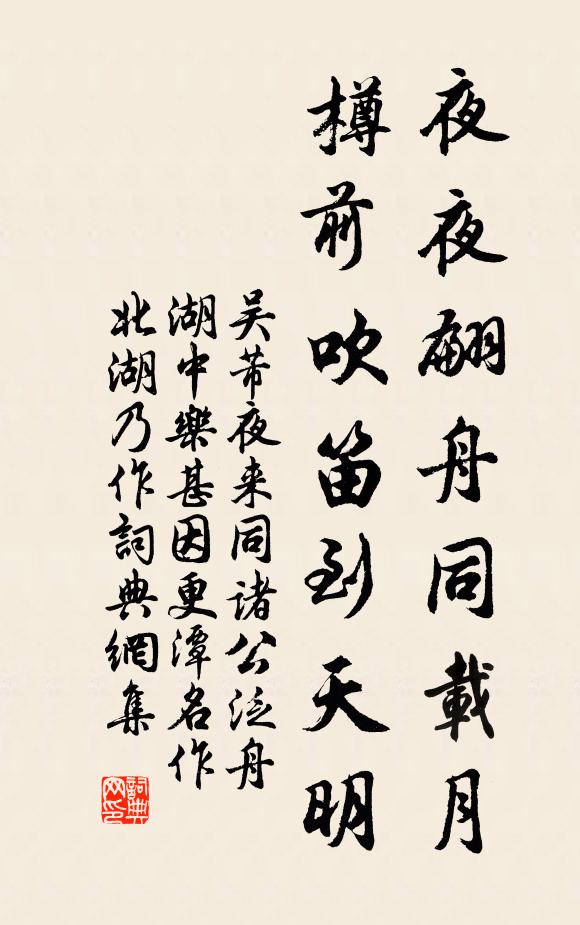 夜夜翩舟同載月
樽前吹笛到天明
吴芾夜来同諸公泛舟
湖中樂甚因更潭名作
北湖乃作詞典網集
詞典
网印